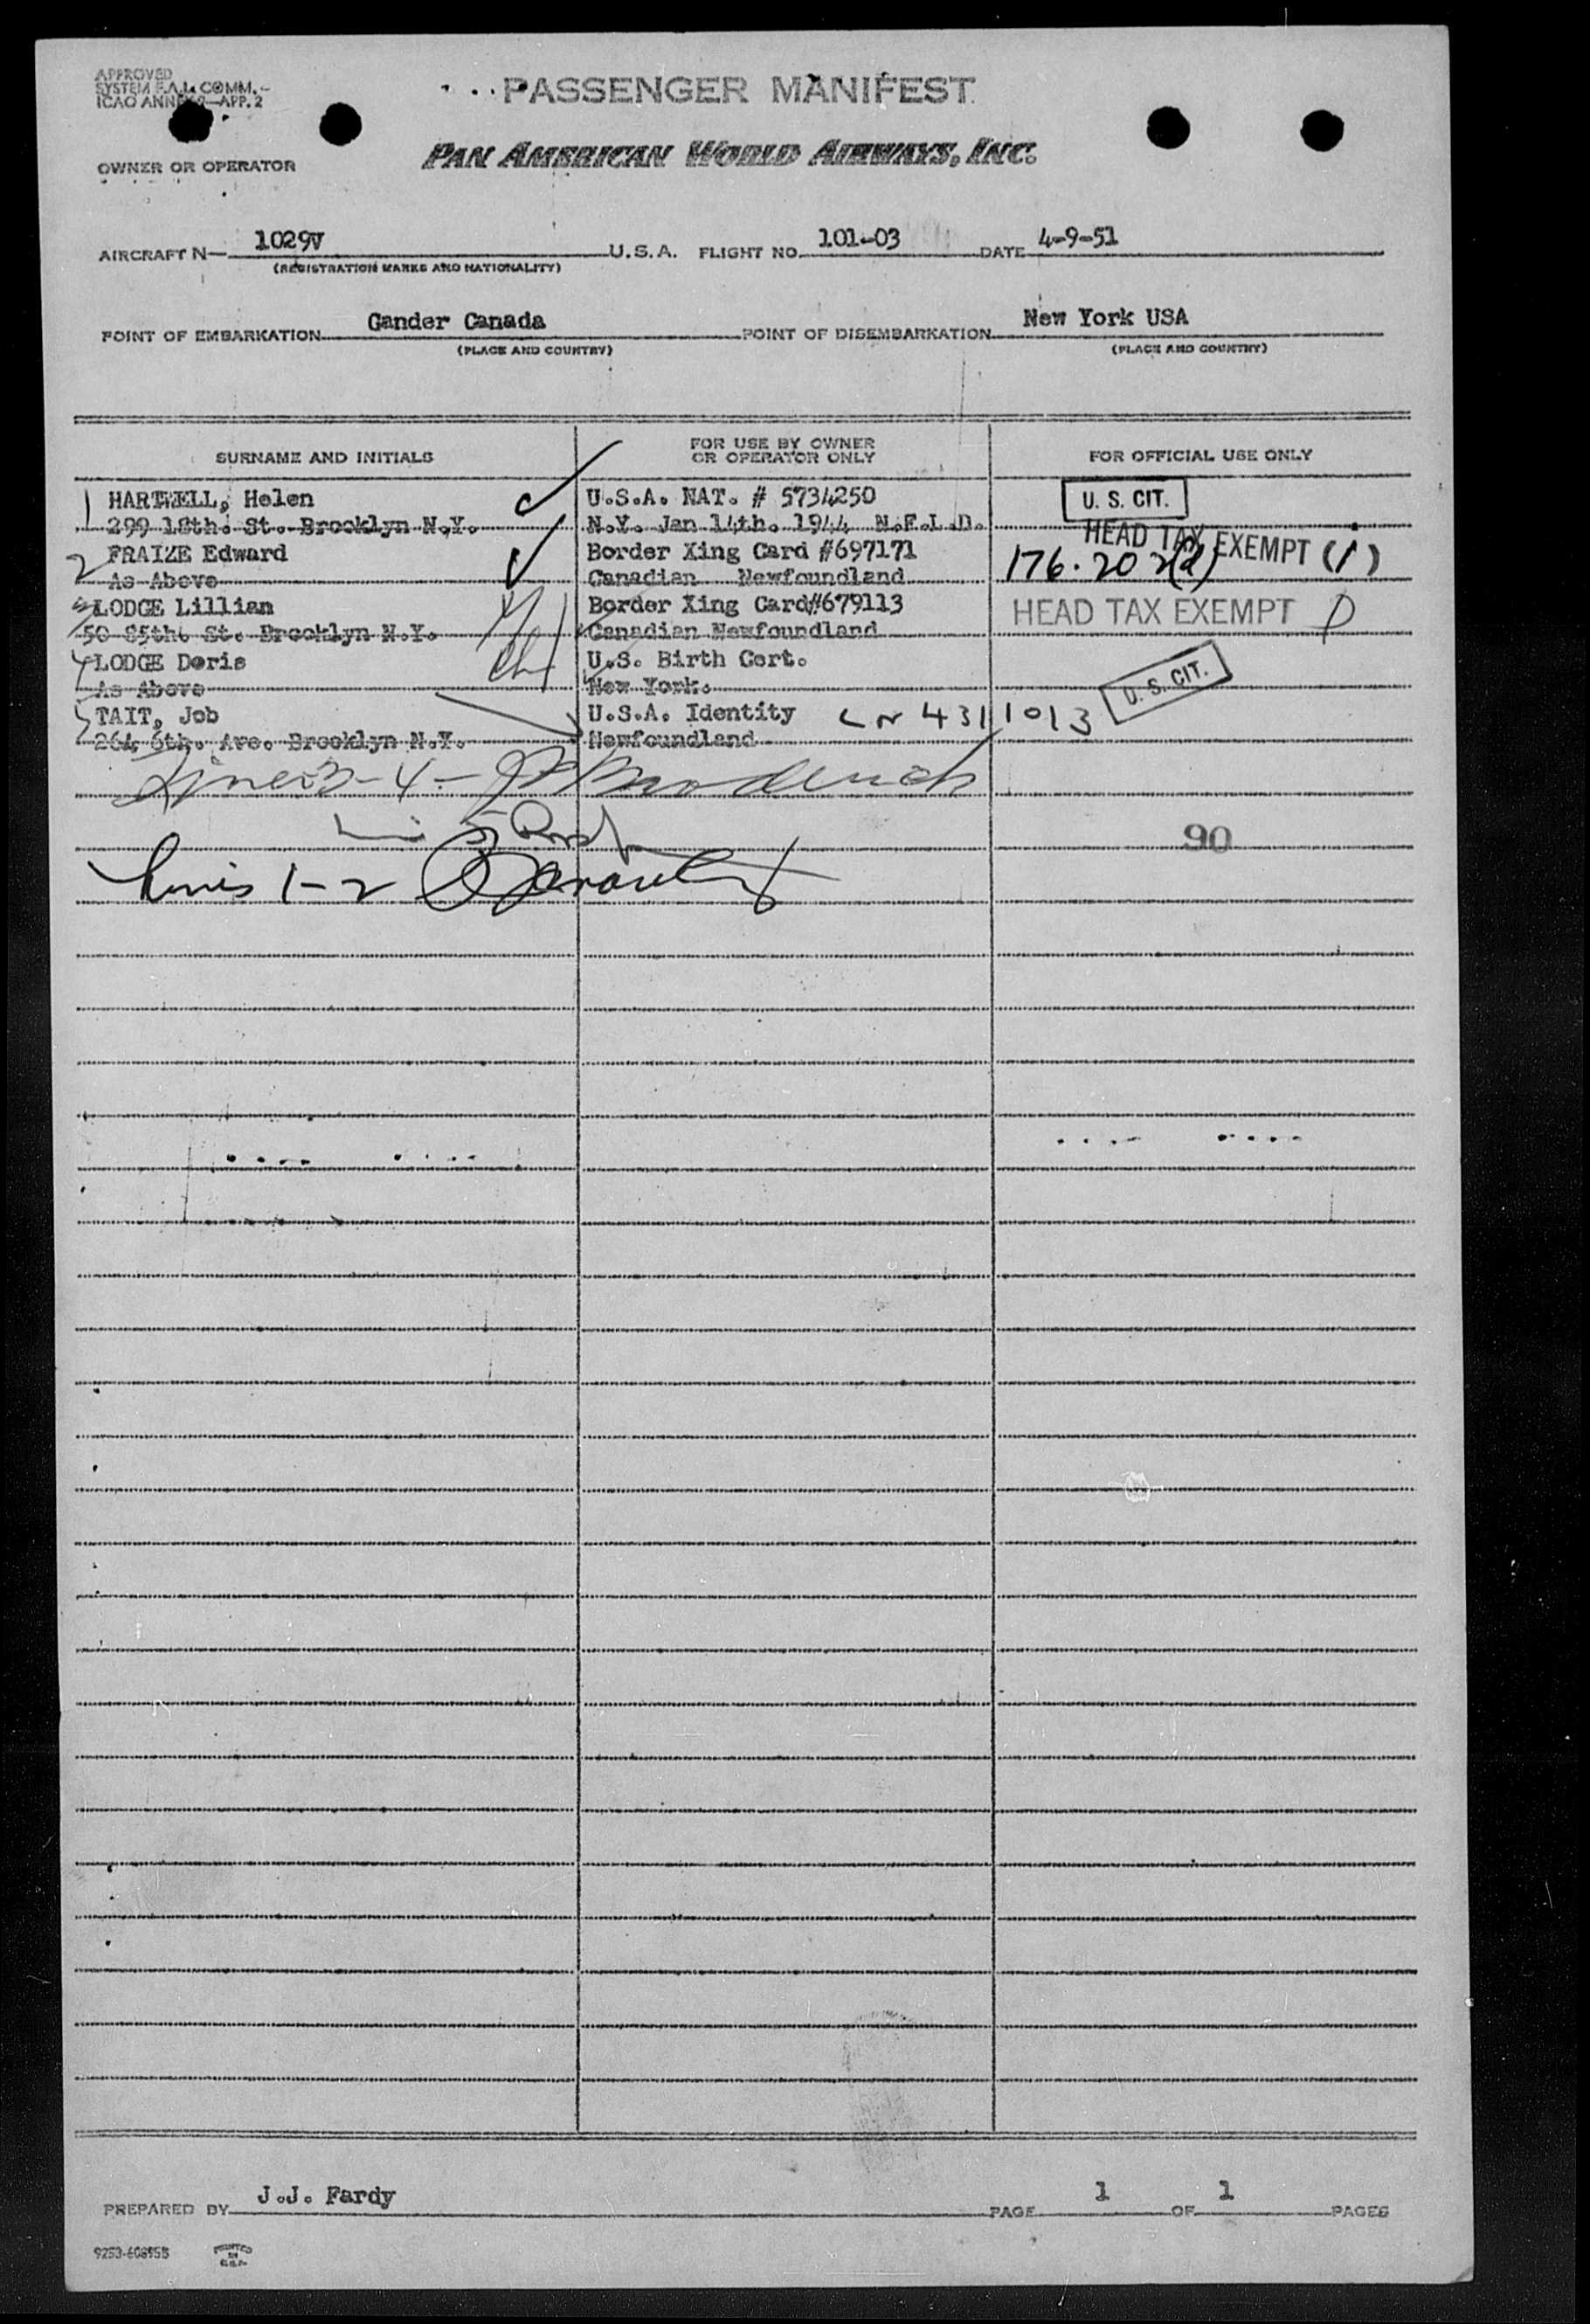 APPROVED
SYSTEM F.A.L. COMM.-
ICAO ANNEX 9-APP. 2
PASSENGER MANIFEST
OWNER OR OPERATOR
PAN AMERICAN WORLD AIRWAYS, INC.
AIRCRAFT N- 1029V U.S.A. FLIGHT NO. 101-03 DATE 4-9-51
(REGISTRATION MARKS AND NATIONALITY)
POINT OF EMBARKATION Gander Canada POINT OF DISEMBARKATION New York USA
(PLACE AND COUNTRY) (PLACE AND COUNTRY)
SURNAME AND INITIALS FOR USE BY OWNER OR OPERATOR ONLY FOR OFFICIAL USE ONLY
1 HARTWELL, Helen U.S.A. NAT. # 5734250 U. S. CIT.
299 18th. St. Brooklyn N.Y. N.Y. Jan 14th. 1944 N.F.L.D.
HEAD TAX EXEMPT (1)
2 FRAIZE Edward Border Xing Card #697171 176.202(d)
As Above Canadian Newfoundland
3 LODGE Lillian Border Xing Card#679113 HEAD TAX EXEMPT
50 85th. St. Brooklyn N.Y. Canadian Newfoundland
4 LODGE Doris U.S. Birth Cert.
As Above New York. U. S. CIT.
5 TAIT, Job U.S.A. Identity 4311013
264 6th. Ave. Brooklyn N.Y. Newfoundland
Lines 3-4-
90
Lines 1-2
PREPARED BY J.J. Fardy PAGE 1 OF 1 PAGES
9253-608955 PRINTED IN U.S.A.